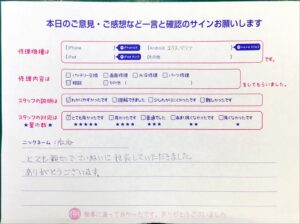 本日のご意見・ご感想など一言と確認のサインお願いします
修理機種は
iPhone
Android
iPad
その他
です。
修理内容は
バッテリー交換
画面修理
水没修理
パーツ修理
相談
その他
をしてもらいました。
スタッフの説明は
わかりやすかったです
理解できました
少しわかりにくかったです
難しかったです
スタッフの対応は
★星の数★
とても良かったです
良かったです
普通でした
あまり良くなかったです
良くなかったです
★★★★★
★★★★
★★★
★★
★
ニックネーム：
とても親切でていねいに対応していただきました。
ありがとうございます。